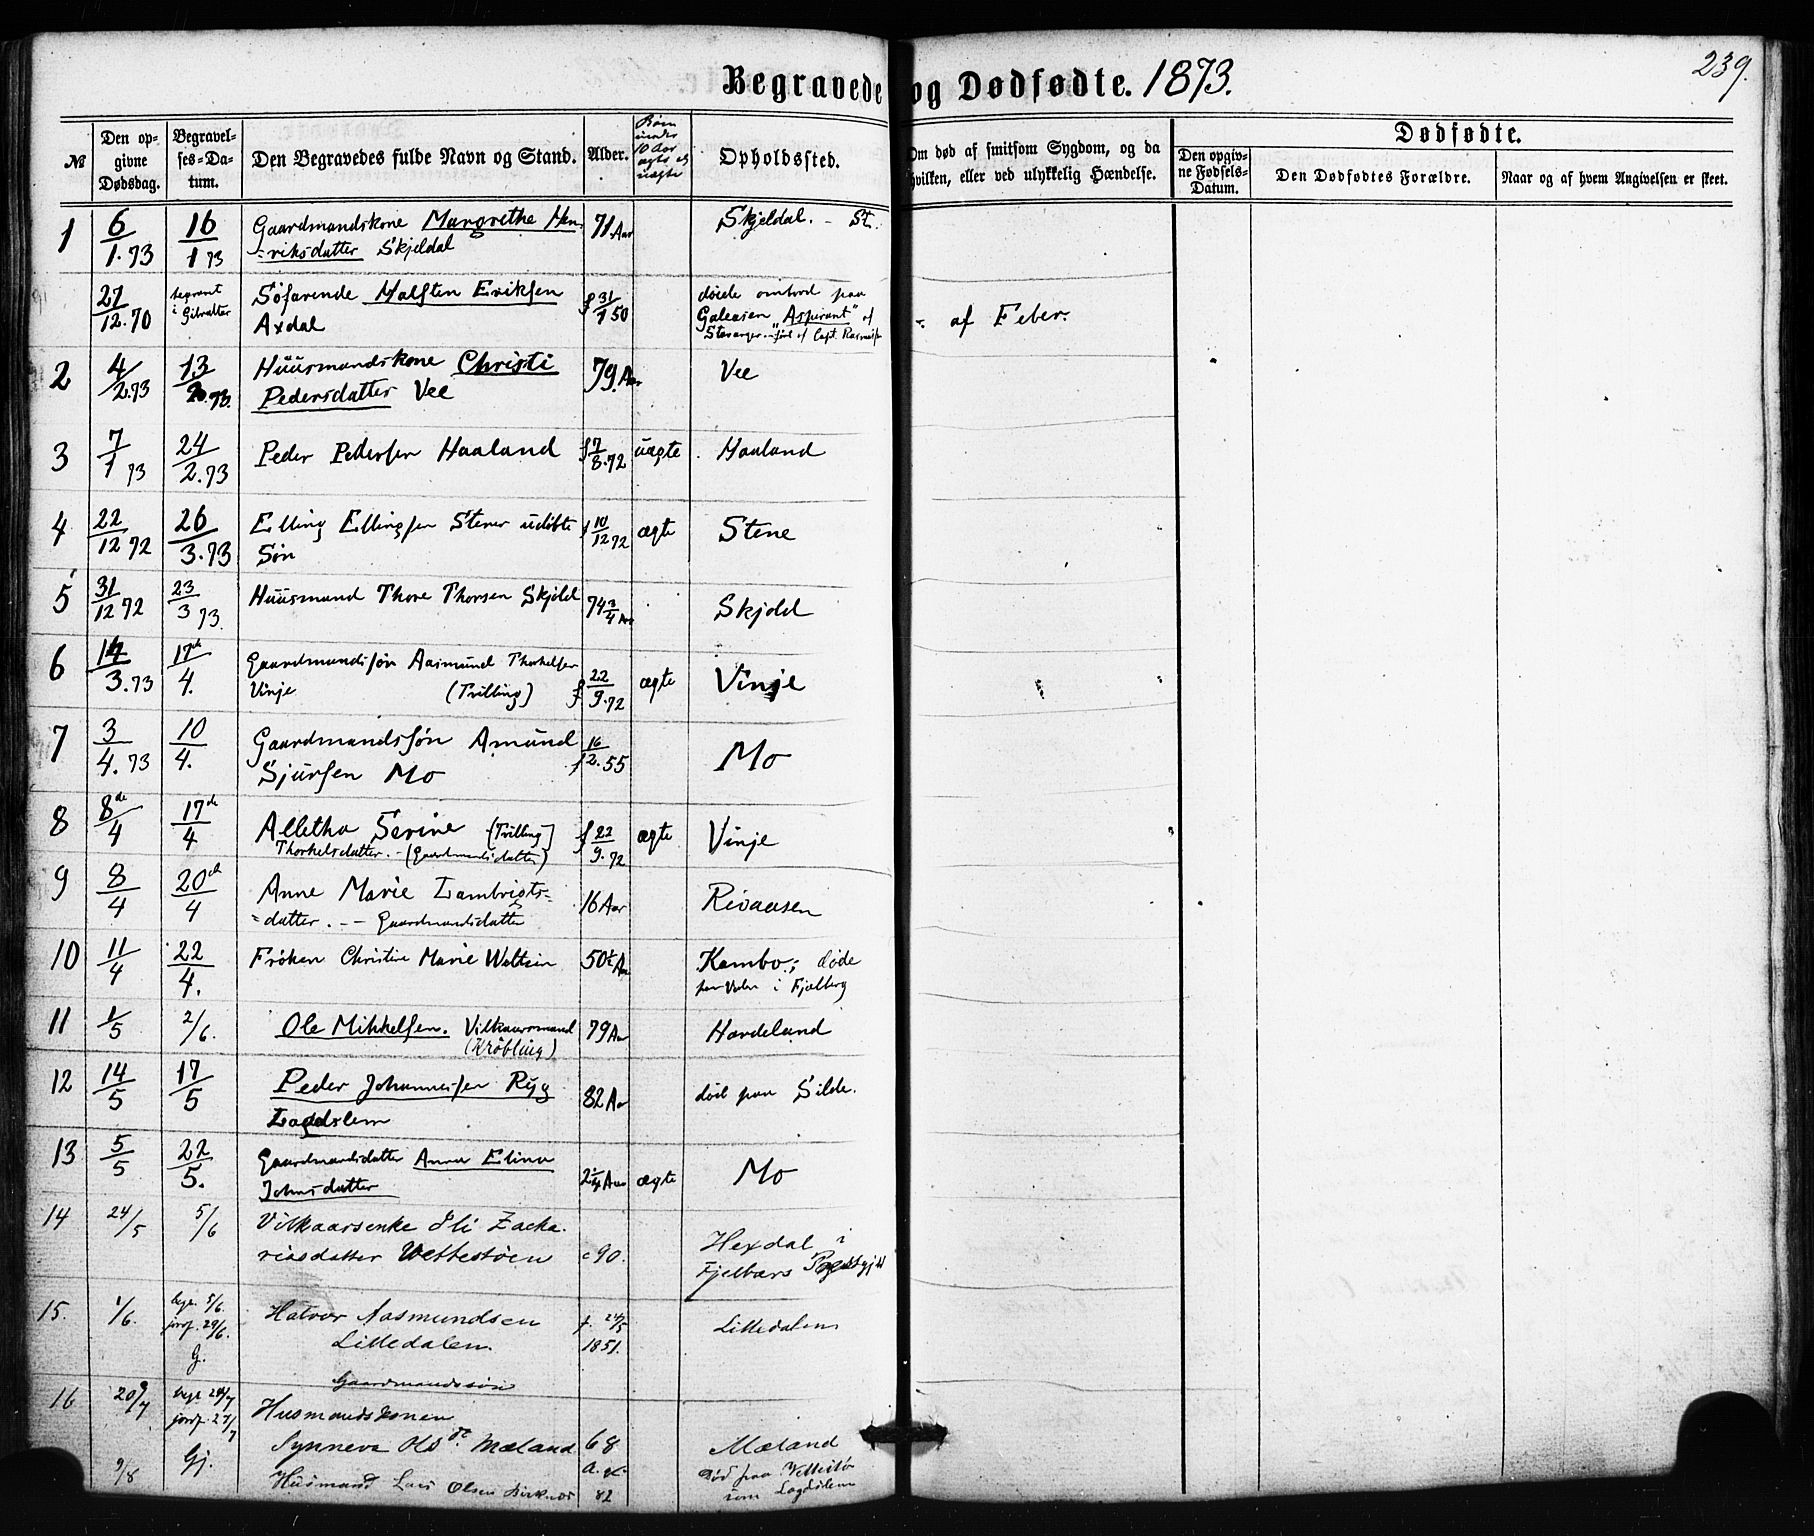 239.
Begravede og Dødfødte. 1873.
№
Den op-
givne
Dødsdag.
Begravel-
ses-Da-
tum.
Den Begravedes fulde Navn og Stand.
Alder.
Børn
under
10 Aar
ægte og
uægte
Opholdssted.
Om død af smitsom Sygdom, og da
hvilken, eller ved ulykkelig Hændelse.
Dødfødte.
Den opgiv-
ne Fødsels-
Datum.
Den Dødfødtes Forældre.
Naar og af hvem Angivelsen er skeet.
1 6/1.73 16/1 73 Gaardmandskone Margrethe Hen- 71 Aar Skjeldal. - St.
-riksdatter Skjeldal
27/12.70 begravet i Gibraltar Søfarende Halsten Eriksen f 31/1 50 døde ombord paa
Axdal Galeasen "Aspirant" af - af Feber.
Stavanger - ført af Capt. Rasmussen
2 4/2.73 13/2.73. Huusmandskone Christi 79. Aar Vee
Pedersdatter Vee
3 7/1 73 24/2.73 Peder Pedersen Haaland f 7/8.72 uægte Haaland
4 22/12 72 26/3.73 Elling Ellingsen Stene udøbte f 10/12 72 ægte Stene
Søn
5 31/12 72 23/3 73. Huusmand Thore Thorsen Skjold 74 3/4 Aar Skjold
6 14/3.73 17de/4. Gaardmandssøn Aasmund Thorkelsen
Vinje (Tvilling) f 22/9.72 ægte Vinje
7 3/4.73 10/4. Gaardmandssøn Amund f 16/2.55 Mo
Sjursen Mo
8 8de/4 17de/4 Alletha Serine (Tvilling) f 22/9.72 ægte Vinje
Thorkelsdatter. - (Gaardmandsdatter)
9 8/4 20de/4 Anne Marie Lambrigts- 16 Aar Rivaasen
=datter. -- Gaardmandsdatter
10 11/4 22/4. Frøken Christine Marie Weltzin 50½ Aar Kambo.; døde
i Fjelberg
11 1/5 2/6. Ole Mikkelsen. Vilkaarsmand 79 Aar Hordeland
(Krøbling)
12 14/5 17/5 Peder Johannessen Ryg 82 Aar død paa Silde.
Lagdslem
13 5/5 22/5. Gaardmandsdatter Anna Elina 2¼ Aar ægte Mo
Johnsdatter
14 24/5 5/6 Vilkaarsenke Eli Zacka-
riasdatter Vettestøen c 90. Hexdal i
Fjelbærs Præstegjeld
15. 1/6. begr. 5/6. Halvor Aasmundsen f. 24/5 Lilledalen
jordf. 29/6. Lilledalen. 1851.
G. Gaardmandssøn
16 20/7 begr. 24/7 Husmandskonen
jordf. 27/7 Synneva Olsdr. Mæland 68 Mæland
Gj.
9/8 Husmand Lars Olsen 82 Død paa Vettestø
som Lagdslem